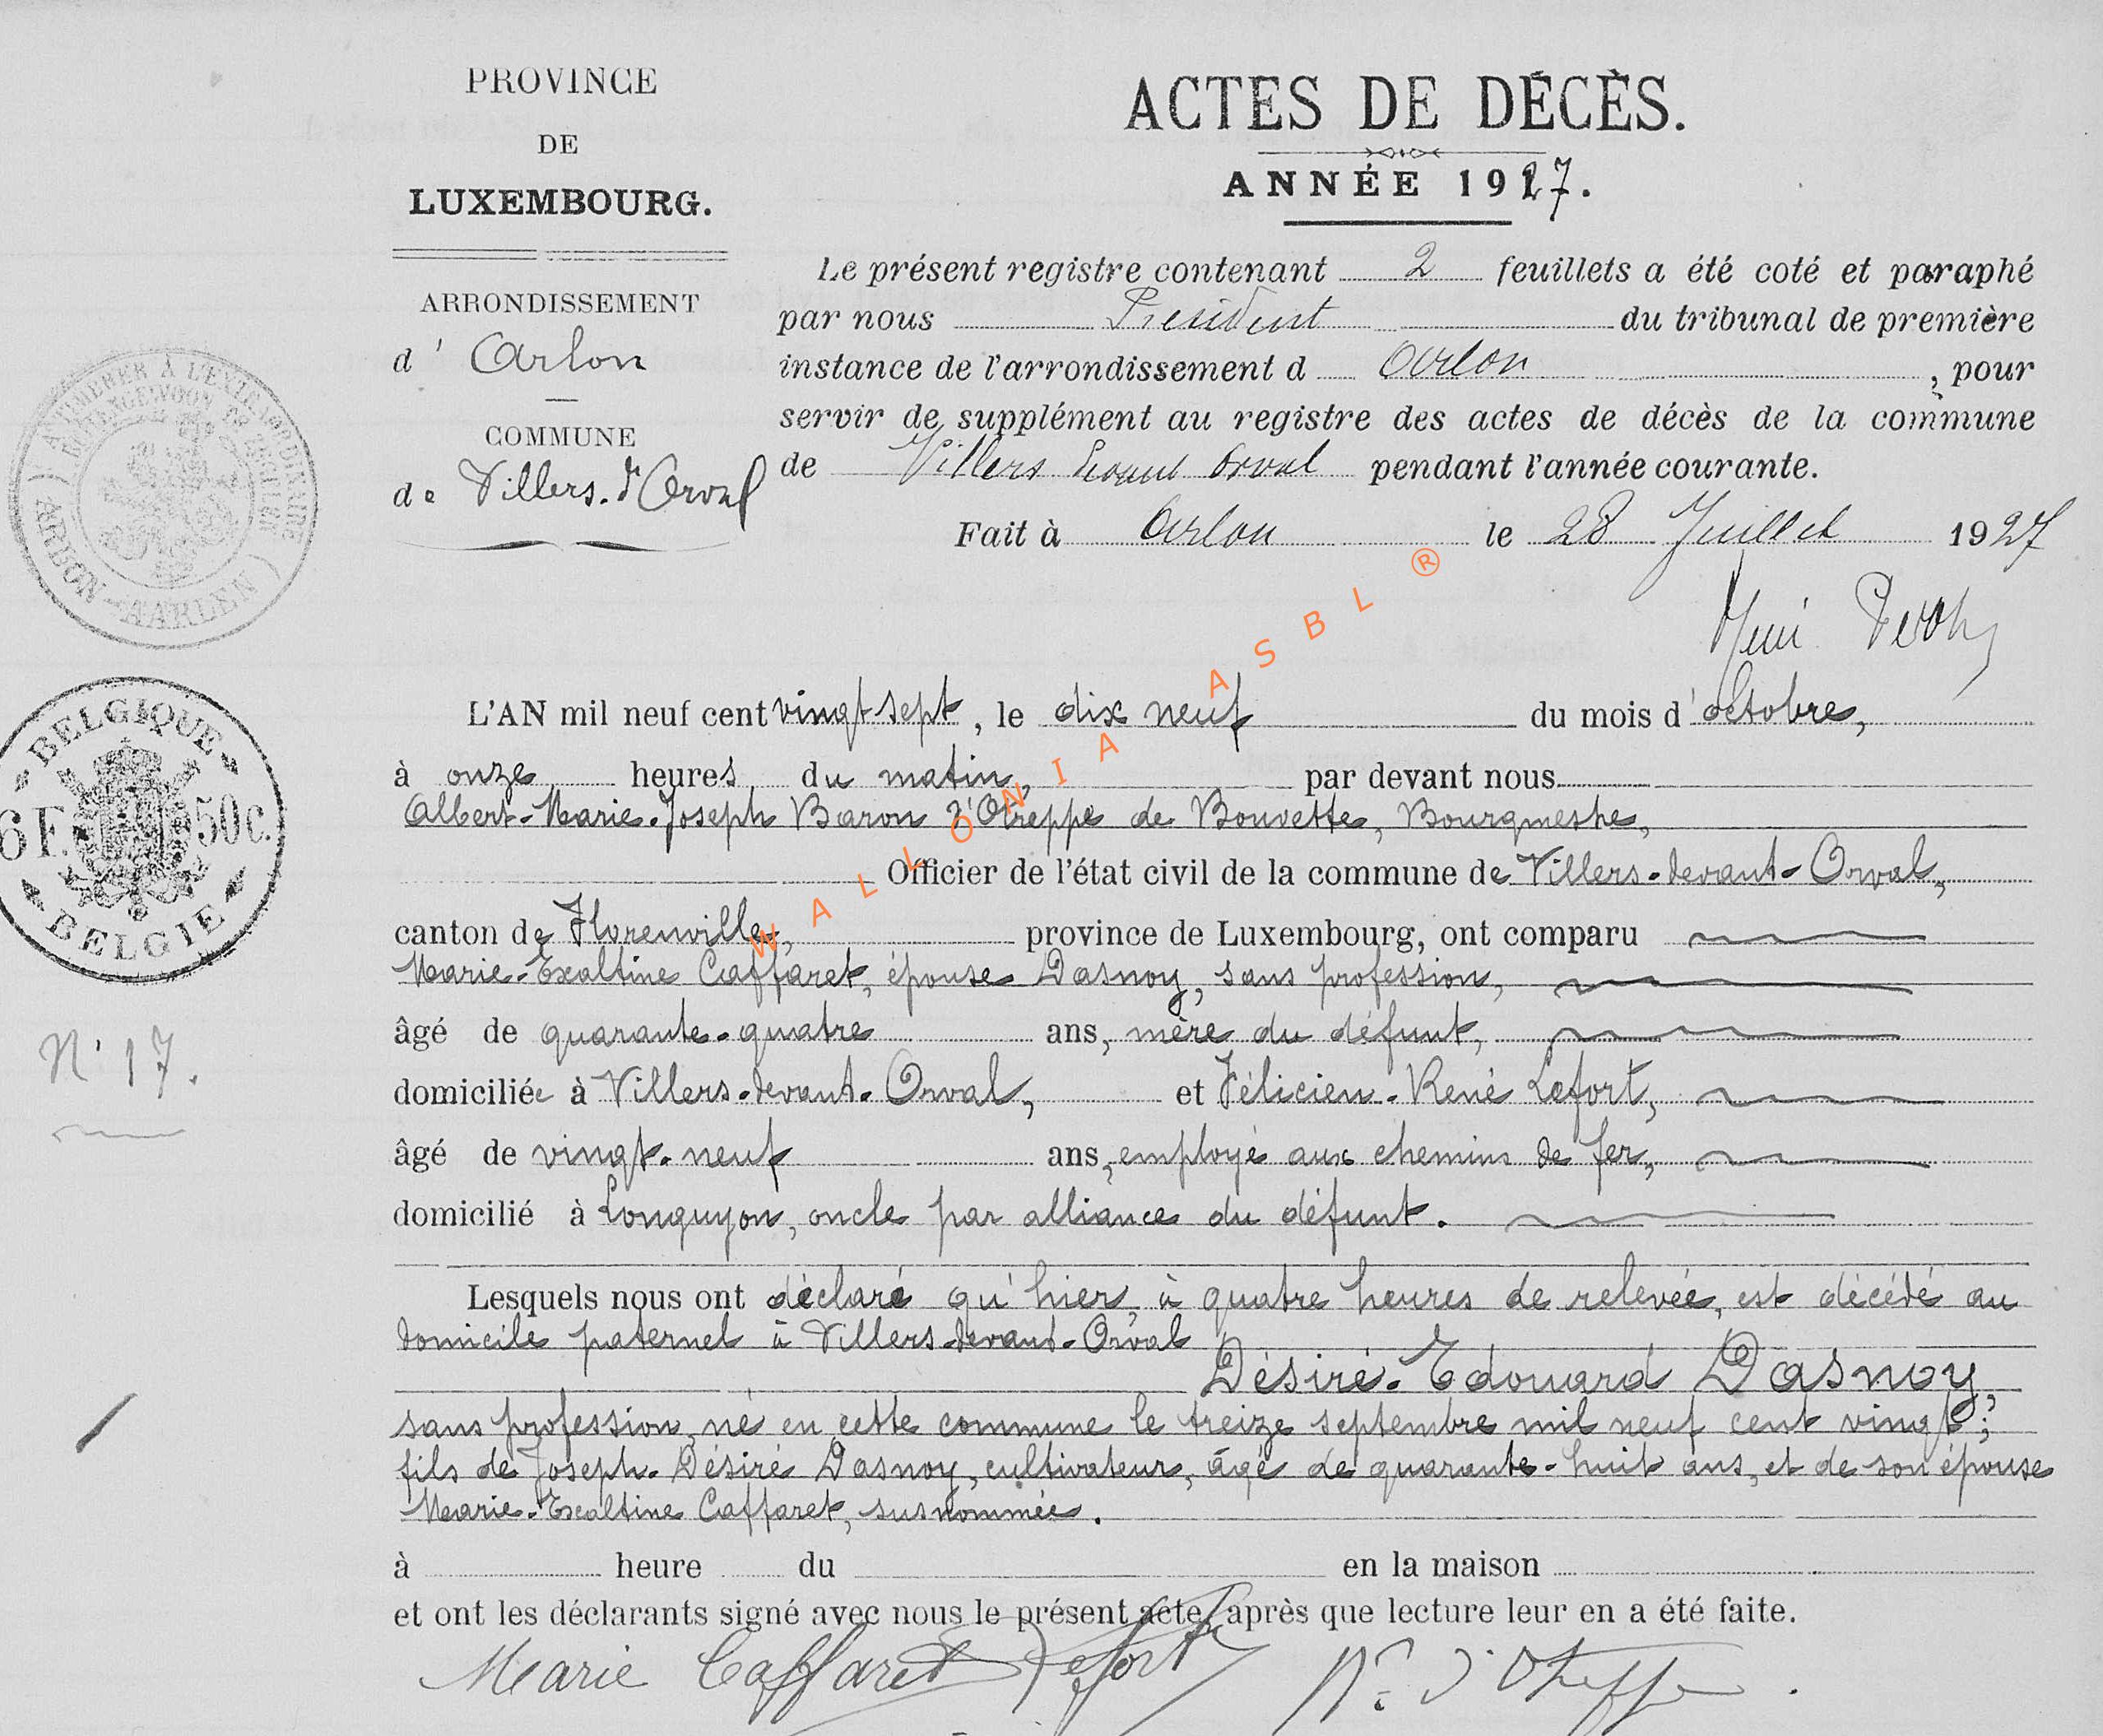 PROVINCE
DE
LUXEMBOURG.
ARRONDISSEMENT
d' Arlon
COMMUNE
de Villers-d'Orval
ACTES DE DÉCÈS.
ANNÉE 1927.
Le présent registre contenant 2 feuillets a été coté et paraphé
par nous Président du tribunal de première
instance de l'arrondissement d Arlon, pour
servir de supplément au registre des actes de décès de la commune
de Villers devant Orval pendant l'année courante.
Fait à Arlon le 28 Juillet 1927
ARLON - AARLEN
BELGIQUE
6 F. 50 c.
BELGIE
N° 17.
L'AN mil neuf cent vingt sept, le dix neuf du mois d'octobre,
à onze heures du matin, par devant nous
Albert-Marie-Joseph Baron d'Otreppe de Bouvette, Bourgmestre,
Officier de l'état civil de la commune de Villers-devant-Orval,
canton de Florenville, province de Luxembourg, ont comparu
Marie-Exaltine Caffaret, épouse Dasnoy, sans profession,
âgé de quarante-quatre ans, mère du défunt,
domiciliée à Villers-devant-Orval, et Félicien-René Lefort,
âgé de vingt-neuf ans, employé aux chemins de fer,
domicilié à Longuyon, oncle par alliance du défunt.
Lesquels nous ont déclaré qu'hier, à quatre heures de relevée, est décédé au
domicile paternel à Villers-devant-Orval
Désiré-Edouard Dasnoy,
sans profession, né en cette commune le treize septembre mil neuf cent vingt;
fils de Joseph-Désiré Dasnoy, cultivateur, âgé de quarante-huit ans, et de son épouse
Marie-Exaltine Caffaret, susnommée.
à heure du en la maison
et ont les déclarants signé avec nous le présent acte, après que lecture leur en a été faite.
Marie Caffaret Lefort Bn d'Otreppe
WALLONIA ASBL ®